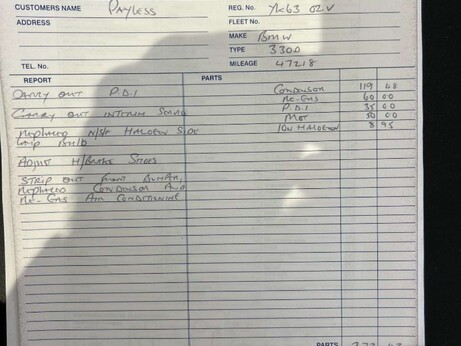 CUSTOMERS NAME PAYLESS
REG. No. YK63 OZV
ADDRESS
FLEET No.
MAKE BMW
TYPE 330D
TEL. No.
MILEAGE 47218
REPORT PARTS
CARRY OUT P.D.I Condenser 119 48
Re-Gas 60 00
CARRY OUT INTERIM P.D.I 35 00
MOT 50 00
REPLACED N/S/F HALOGEN SIDE 10W HALOGEN 8 95
ADJUST H/BRAKE SHOES
STRIP OUT FRONT BUMPER,
REPLACED CONDENSOR AND
RE-GAS AIR CONDITIONING
PARTS 273 43